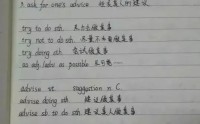 3. ask for one's advice 征求某人的建议
try to do sth 尽力去做某事
try not to do sth 尽量不去做某事
try doing sth 尝试做某事
as adj/adv as possible 尽可能…
advise vt suggestion n C
advise doing sth 建议做某事
advise sb to do sth 建议某人做某事